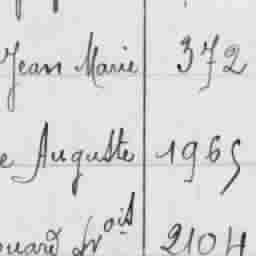 Jean Marie 372
e Auguste 1965
ouard Fr ois 2104